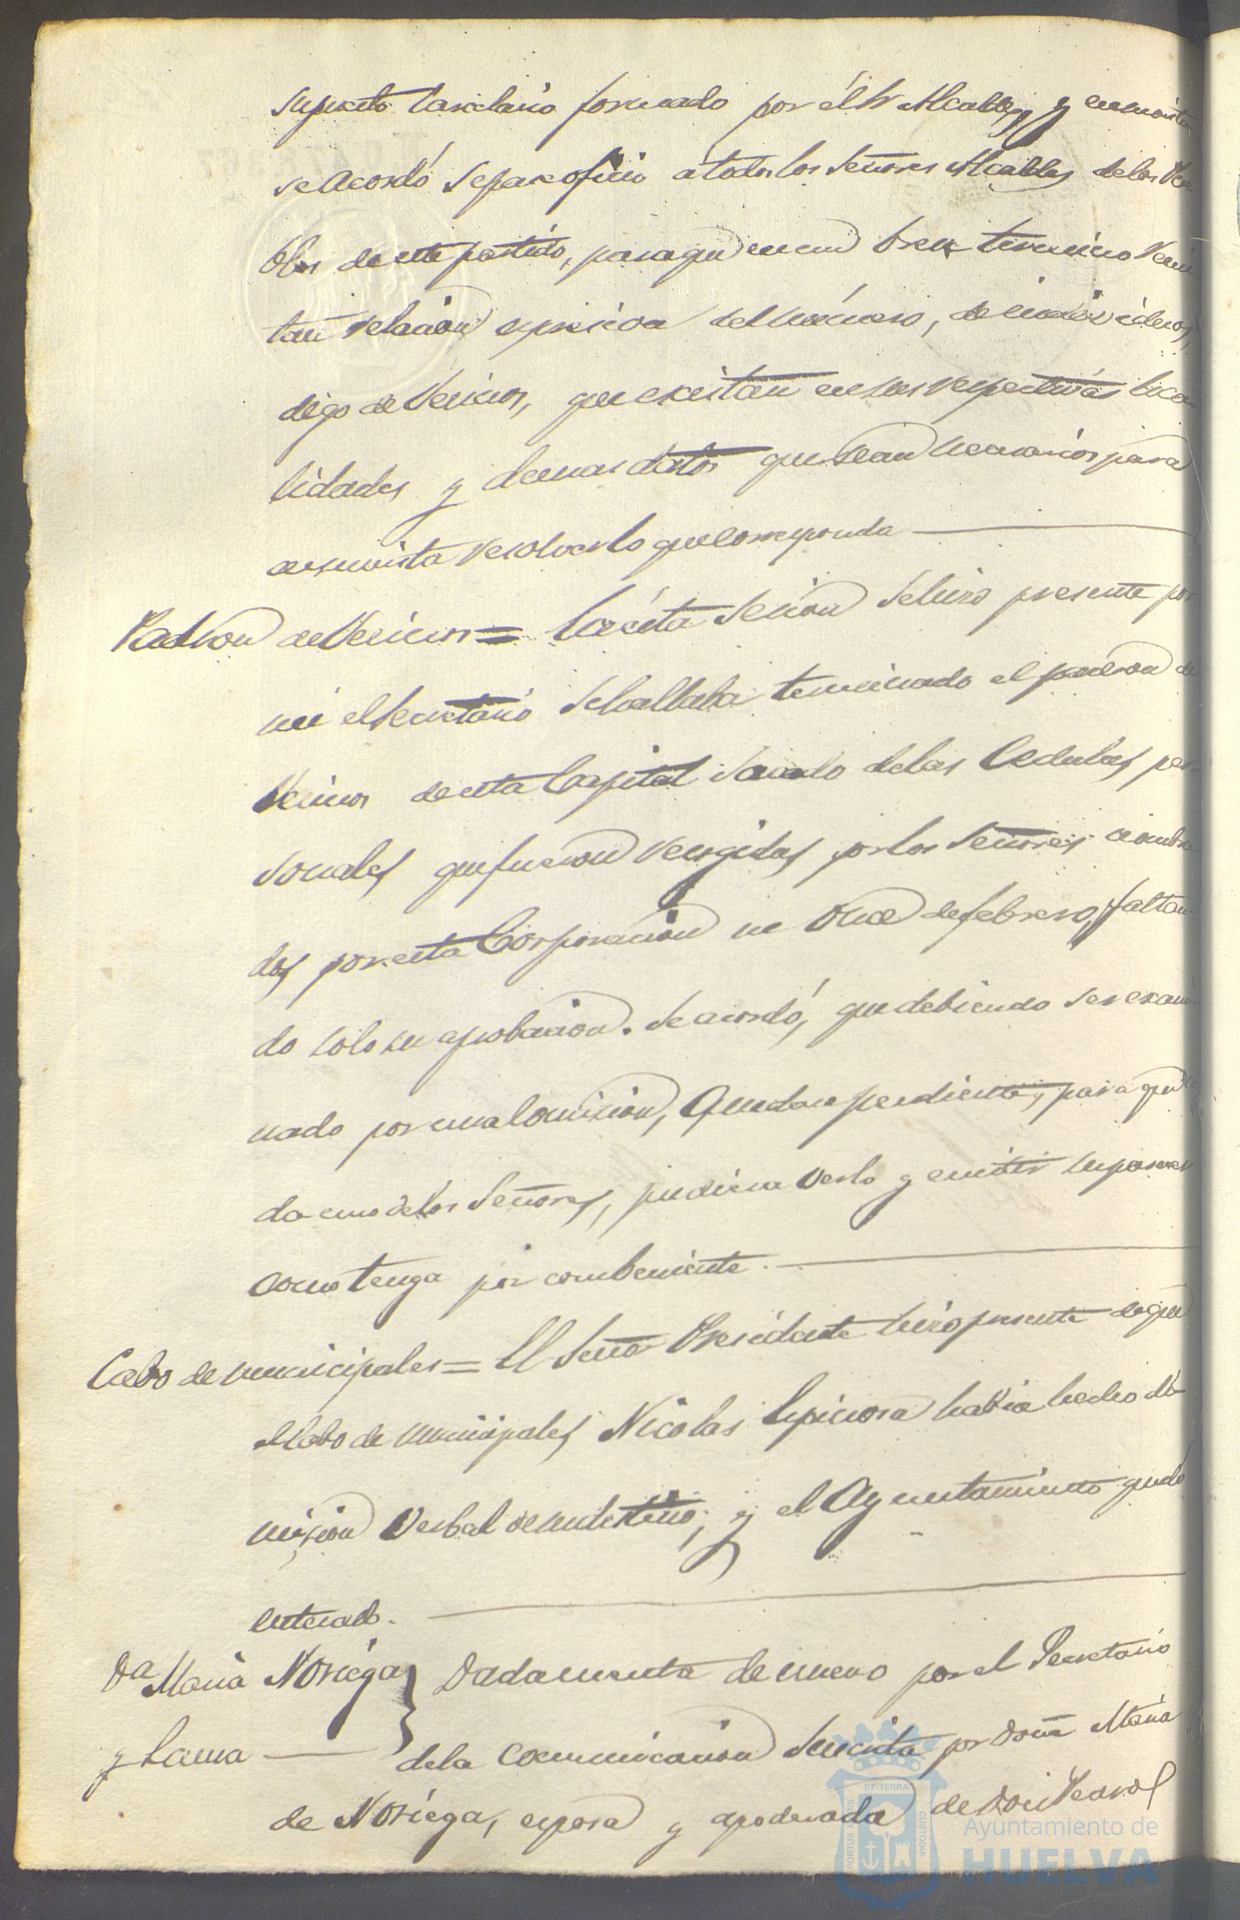 supuesto Carcelario formado por él Sr Alcalde, y en su vista
se acordó se pase oficio a todos los Señores Alcaldes de los Pue
blos de este partido, para que en un breve termino remi
tan relacion espresiva del número, de individuos,
digo de Vecinos, que existan en sus respectivas loca
lidades y demas datos que sean necesarios para
en su vista resolver lo que corresponda
Padron de Vecinos = En esta Sesion se hizo presente por
mi el Secretario se hallaba terminado el padron de
Vecinos de esta Capital sacado de las Cedulas per
sonales que fueron recogidas por los Señores nombra
dos por esta Corporacion en Once de febrero, faltan
do solo su aprobacion. Se acordó, que debiendo ser exami
nado por una Comision, Quedara pendiente, para que
da uno de los Señores, pudiera verlo y emitir su parecer
como tenga por combeniente.
Cabo de municipales = El Señor Presidente hizo presente de que
el Cabo de municipales Nicolas Espinosa habia hecho di
mision Verbal de su destino, y el Ayuntamiento quedó
enterado.
Da Maria Noriega
y Lama
Dada cuenta de nuevo por el Secretario
de la Comunicacion Suscrita por Doña Maria
de Noriega, esposa y apoderada de Don
ET TERRAE
PORTUS MARIS
CUSTODIA
Ayuntamiento de
HUELVA